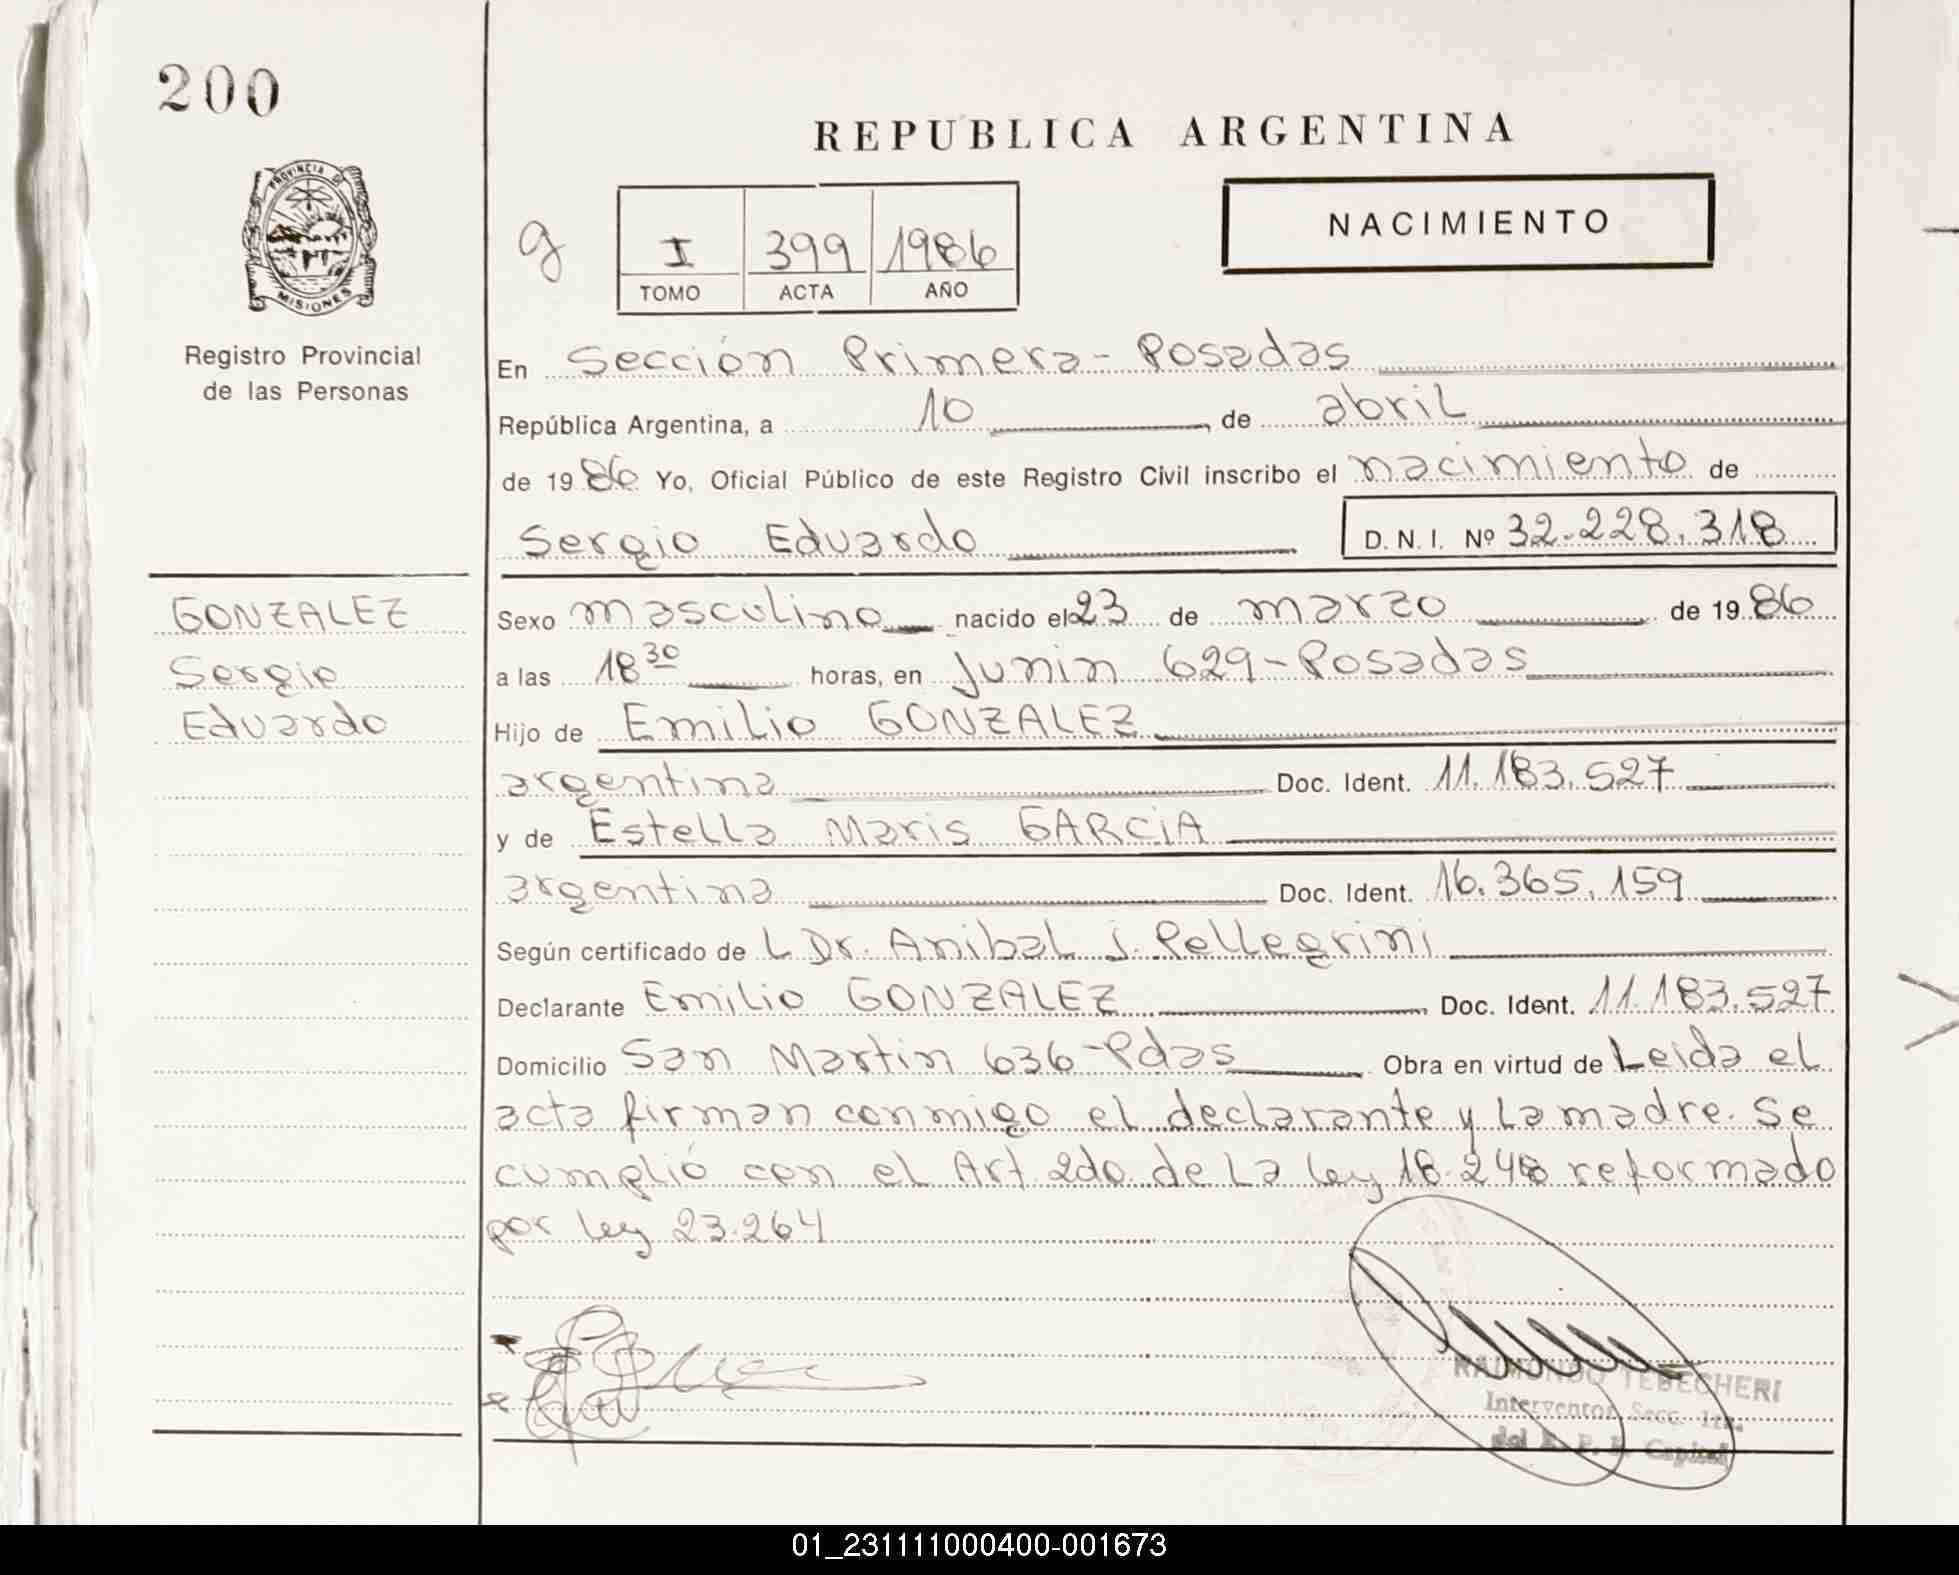 200
REPUBLICA ARGENTINA
PROVINCIA DE
MISIONES
Registro Provincial
de las Personas
g
I 399 1986
TOMO ACTA AÑO
NACIMIENTO
En Sección Primera - Posadas
República Argentina, a 10 de abril
de 1986 Yo, Oficial Público de este Registro Civil inscribo el nacimiento de
Sergio Eduardo D. N. I. Nº 32.228.318
GONZALEZ
Sergio
Eduardo
Sexo masculino nacido el 23 de marzo de 1986
a las 18 30 horas, en Junin 629 - Posadas
Hijo de Emilio GONZALEZ
argentina Doc. Ident. 11.183.527
y de Estella Maris GARCIA
argentina Doc. Ident. 16.365.159
Según certificado de L Dr. Anibal J. Pellegrini
Declarante Emilio GONZALEZ Doc. Ident. 11.183.527
Domicilio San Martin 636 - Pdas Obra en virtud de Leida el
acta firman conmigo el declarante y la madre. Se
cumplió con el Art. 2do. de La Ley 18.248 reformado
por Ley 23.264
RAIMONDO TEBECHERI
Interventor Secc. 1ra.
del R. P. P. Capital
01_231111000400-001673